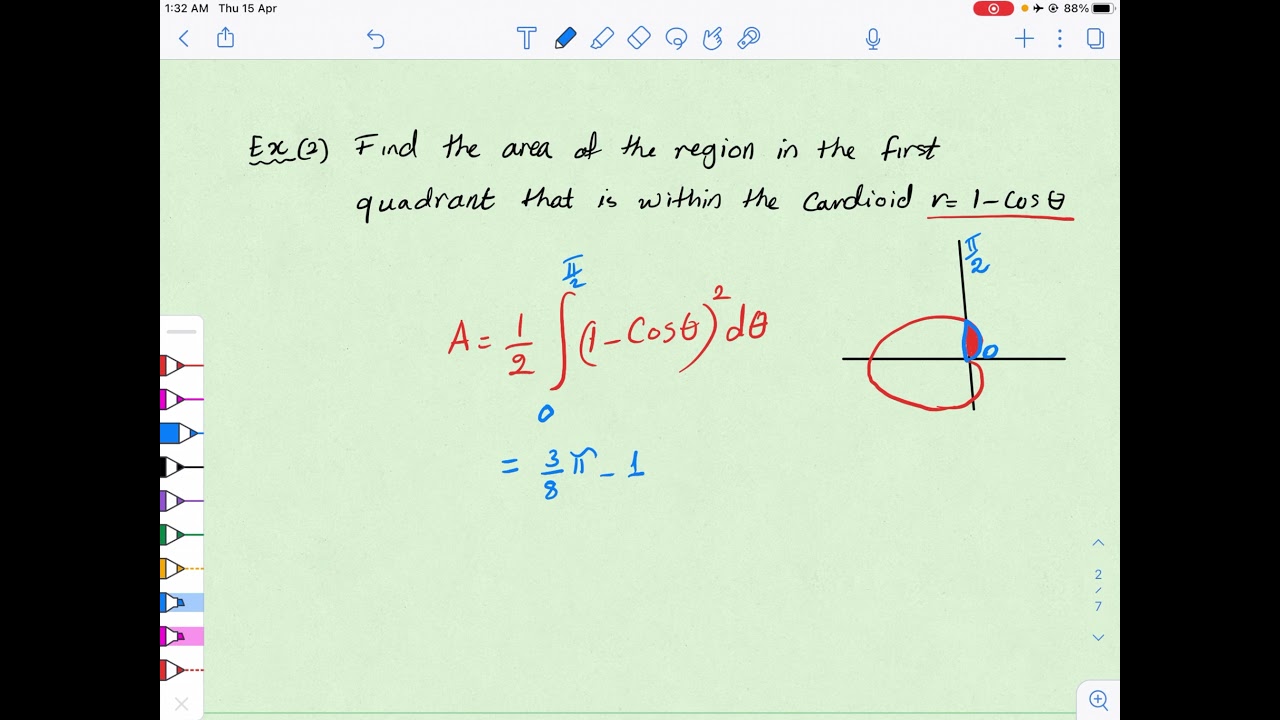 1:32 AM Thu 15 Apr
88%
T
Ex(2) Find the area of the region in the first
quadrant that is within the cardioid r = 1 - Cosθ
π/2
A = 1/2 ∫ (1 - Cosθ)² dθ
0
= 3/8 π - 1
π/2
0
2
/
7